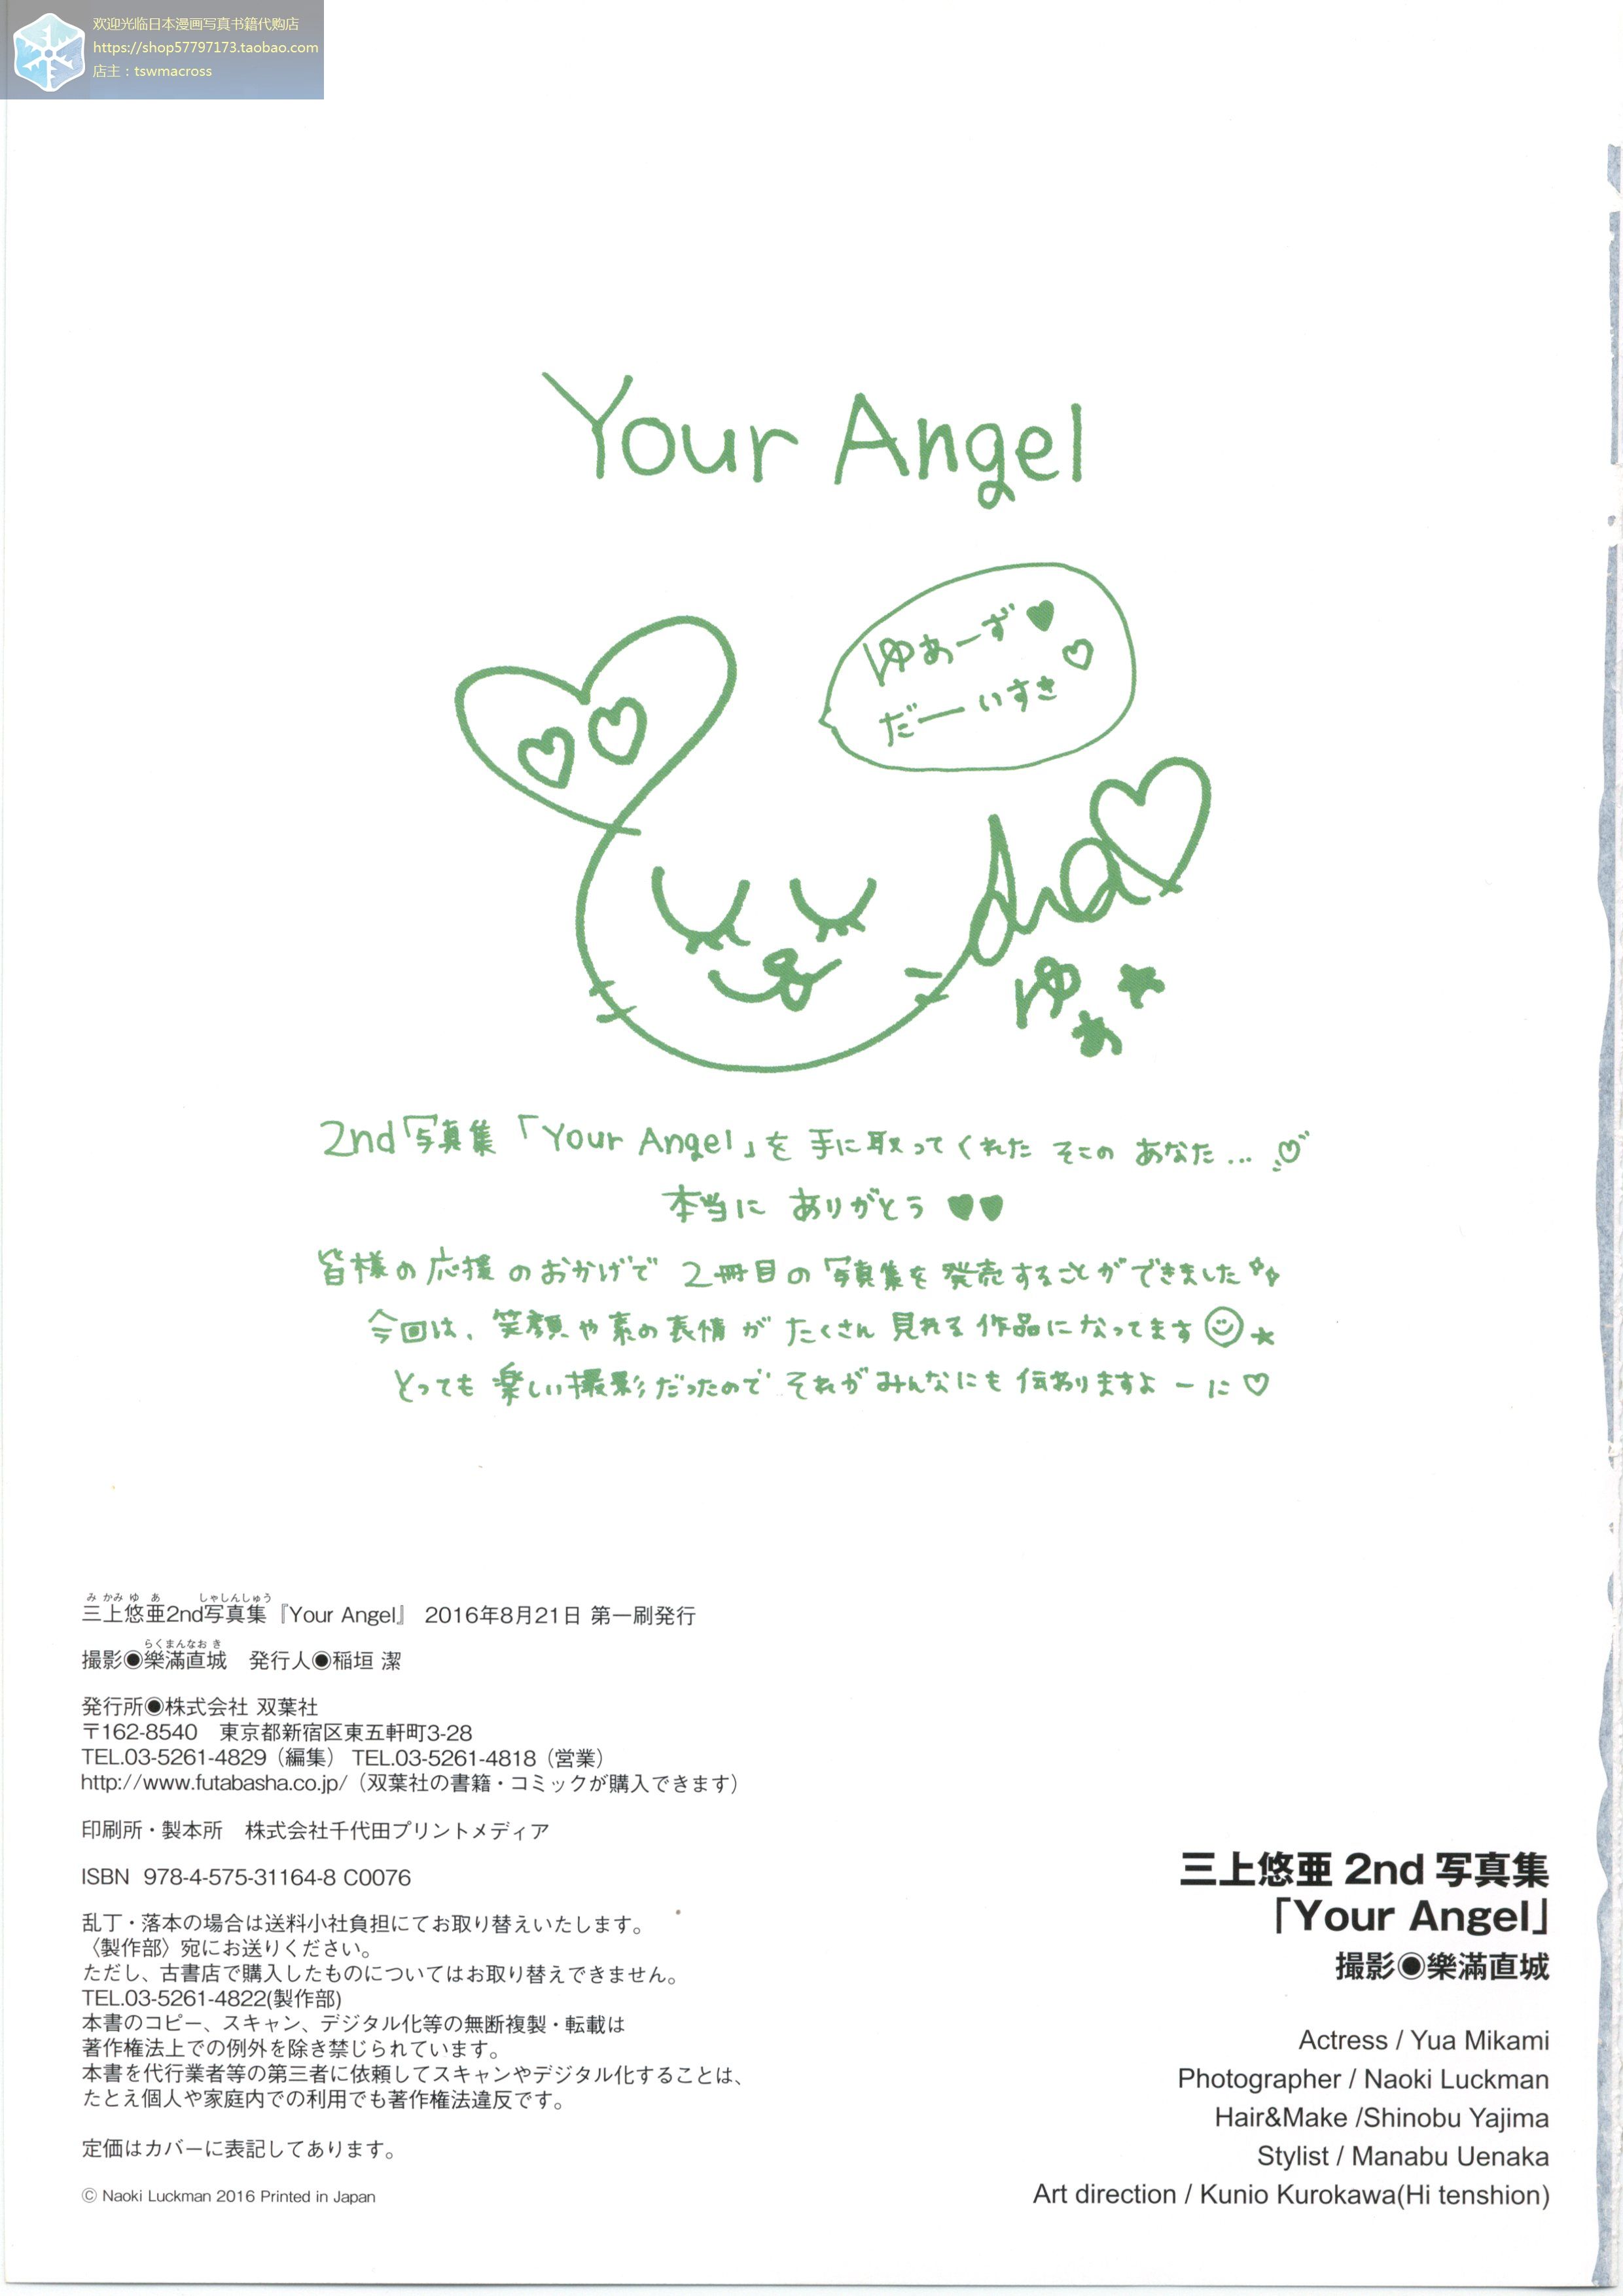 欢迎光临日本漫画写真书籍代购店
https://shop57797173.taobao.com
店主：tswmacross
Your Angel
ゆあーず♥
だーいすき♡
ゆあ★
2nd写真集「Your Angel」を手に取ってくれた そこの あなた…♡
本当に ありがとう ♥♥
皆様の応援のおかげで 2冊目の写真集を発売することができました
今回は、笑顔や素の表情が たくさん 見れる作品になってます☺★
とっても楽しい撮影だったので それがみんなにも伝わりますよーに♡
み かみ ゆ あ しゃしんしゅう
三上悠亜2nd写真集『Your Angel』 2016年8月21日 第一刷発行
らくまんなお き
撮影◉樂滿直城 発行人◉稲垣 潔
発行所◉株式会社 双葉社
〒162-8540 東京都新宿区東五軒町3-28
TEL.03-5261-4829（編集） TEL.03-5261-4818（営業）
http://www.futabasha.co.jp/（双葉社の書籍・コミックが購入できます）
印刷所・製本所 株式会社千代田プリントメディア
ISBN 978-4-575-31164-8 C0076
乱丁・落本の場合は送料小社負担にてお取り替えいたします。
〈製作部〉宛にお送りください。
ただし、古書店で購入したものについてはお取り替えできません。
TEL.03-5261-4822(製作部)
本書のコピー、スキャン、デジタル化等の無断複製・転載は
著作権法上での例外を除き禁じられています。
本書を代行業者等の第三者に依頼してスキャンやデジタル化することは、
たとえ個人や家庭内での利用でも著作権法違反です。
定価はカバーに表記してあります。
© Naoki Luckman 2016 Printed in Japan
三上悠亜 2nd 写真集
「Your Angel」
撮影◉樂滿直城
Actress / Yua Mikami
Photographer / Naoki Luckman
Hair&Make /Shinobu Yajima
Stylist / Manabu Uenaka
Art direction / Kunio Kurokawa(Hi tenshion)